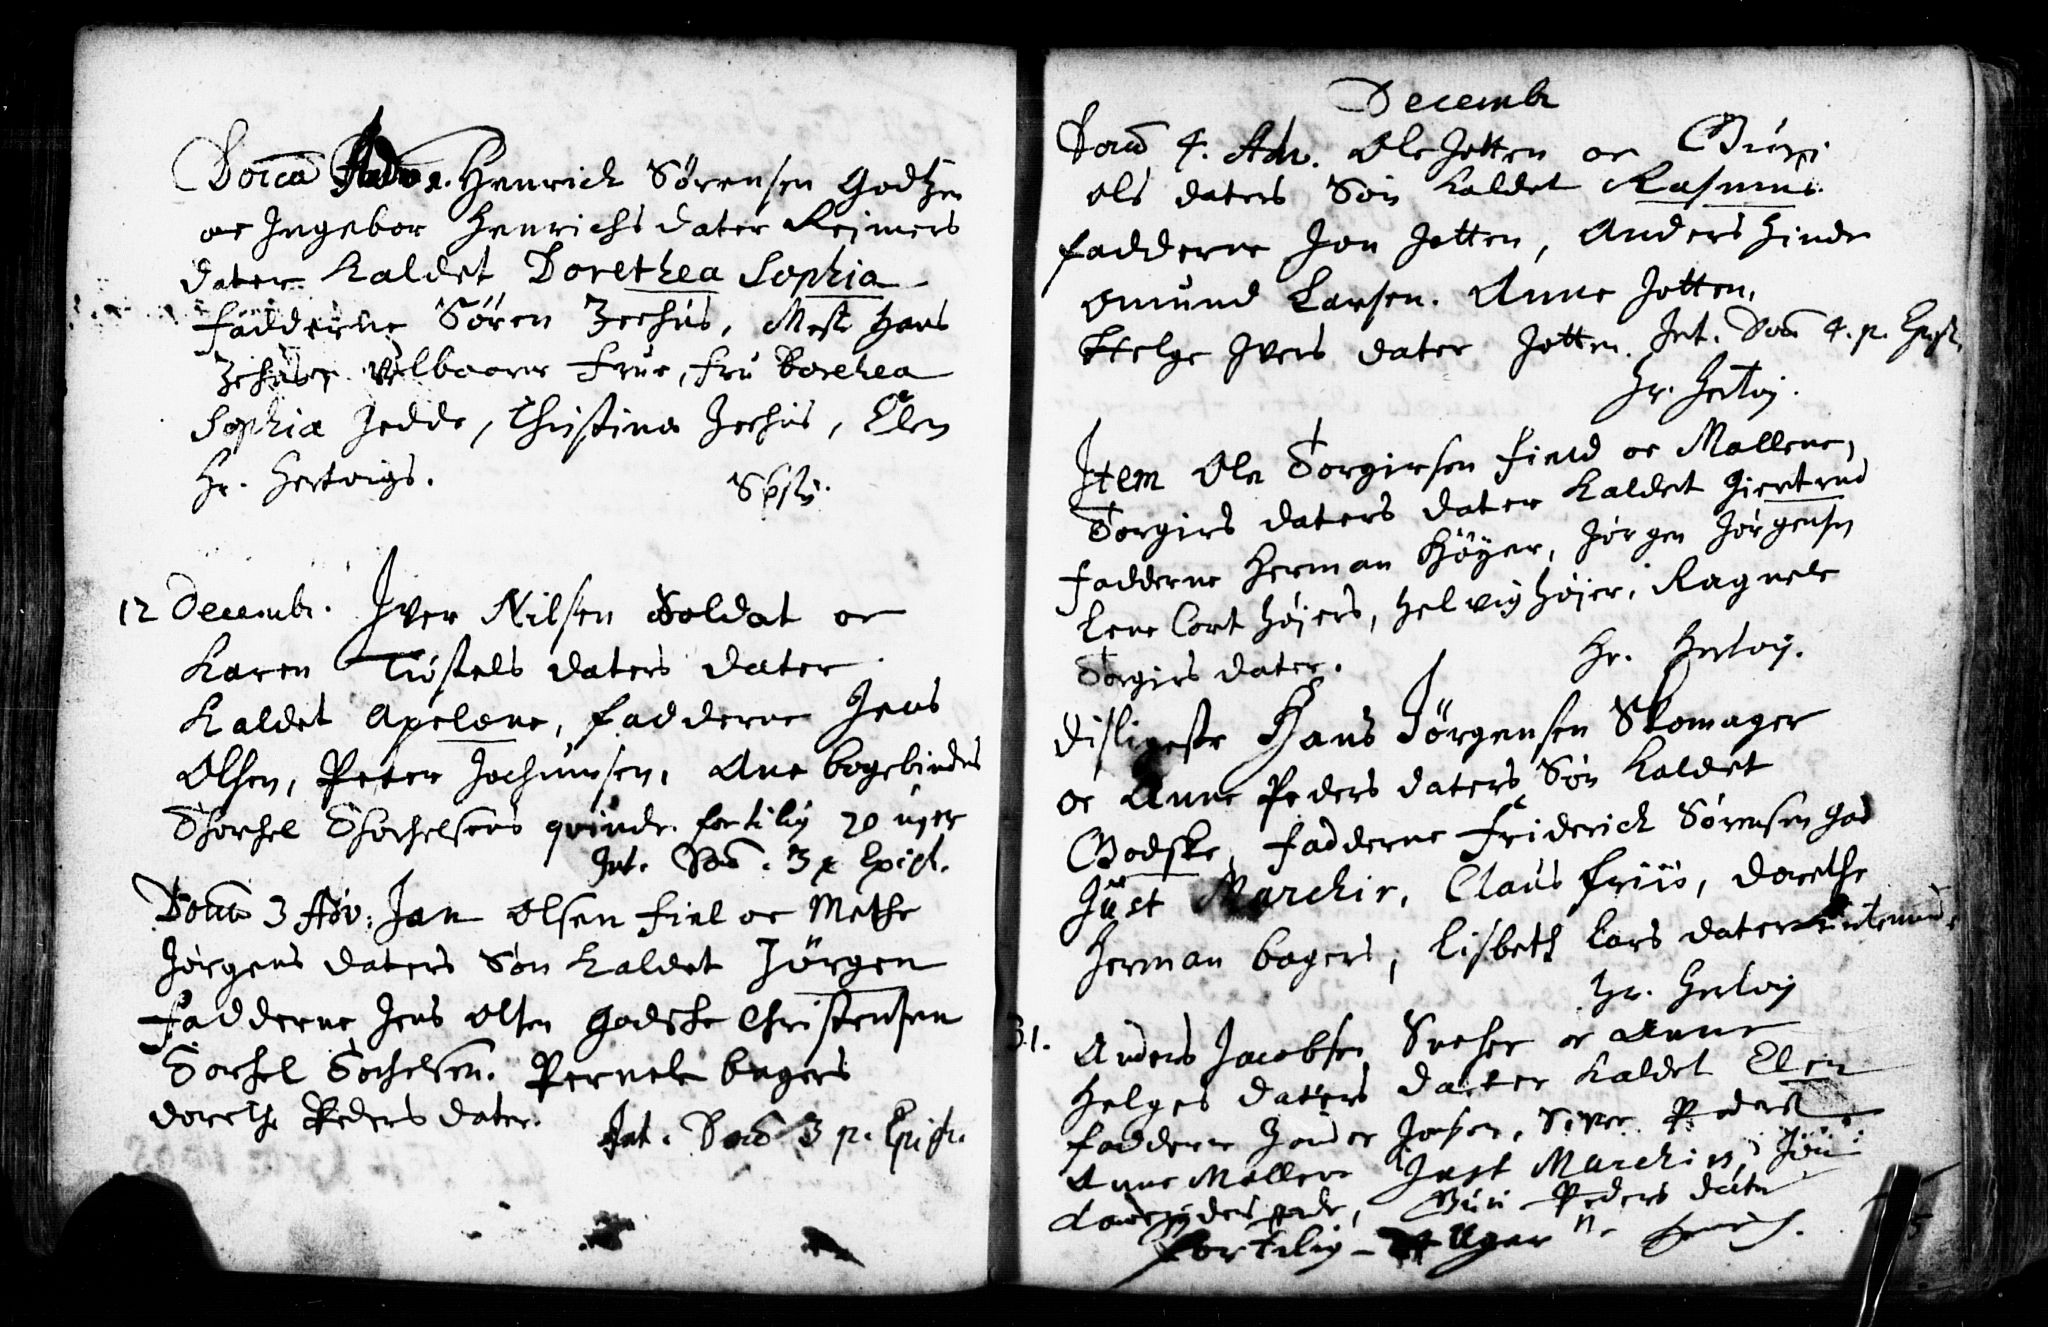 Henrich Sørensen Godtzen
oc Ingebor Henrichs dater Reimers
dater kaldet Dorethea Sophia
fadderne Søren Hans
Welbaarne Frue, Fru Dorethea
Sophia Jedde, Christina Elen
Hr. Hertvigs.
12 Decembr. Iver Nilsen Soldat oc
Karen Tiøstels daters dater
kaldet Apelone, fadderne Jens
Olsen, Peter Jochumsen, Ane bogebinders
Thorkel Thorkelsens qvinde. for tilig 20 uger
Int. Dom. 3 p Epiph.
Dom 3 Adv. Jan Olsen Fiel oc Methe
Jørgens daters Søn kaldet Jörgen
Fadderne Jens Olsen Godske Christensen
Torkel Torkelsen. Pernele bagers
dorethe Peders dater.
Int. Dom 3 p. Epiph.
Decembr
Dom 4. Adv. Ole Jotten oc Guri
ols daters Søn kaldet Rasmus
fadderne Jon Jotten, Anders Hinde
Omund Larsen. Anne Jotten,
Helge Ivers dater Jotten. Int. Dom 4. p. Epiph.
Hr. Hertvig.
Item Ole Torgirsen Field oc Mallene,
Torgirs daters dater kaldet Giertrud
fadderne Herman Høyer, Jørgen Jørgensen
Lene Cort Højers, Helvig Højer, Ragnele
Torgirs dater. Hr. Hertvig.
disligeste Hans Jörgensen Skomager
oc Anne Peders daters Søn kaldet
Godske, fadderne Friderich Sørensen God
Just Marchir, Claus Friis, dorethe
Herman bagers, Lisbeth Lars dater
Hr. Hertvig
31. Anders Jacobsen oc Anne
Helges daters dater kaldet Elen
fadderne Jonsen, Siver Peders
Anne Møllers Just Marchirs,
Guri Peders dater
for tilig Uger